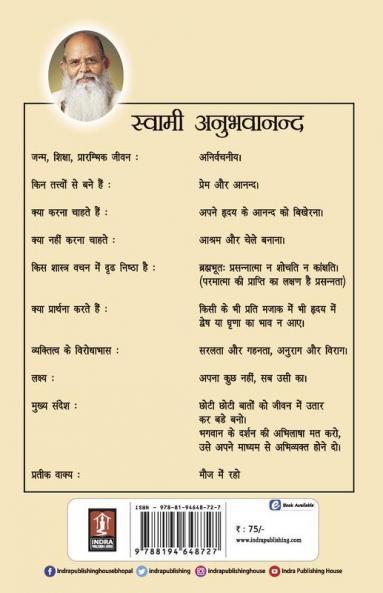 स्वामी अनुभवानन्द
जन्म, शिक्षा, प्रारम्भिक जीवन : अनिर्वचनीय।
किन तत्त्वों से बने हैं : प्रेम और आनन्द।
क्या करना चाहते हैं : अपने हृदय के आनन्द को बिखेरना।
क्या नहीं करना चाहते : आश्रम और चेले बनाना।
किस शास्त्र वचन में दृढ निष्ठा है : ब्रह्मभूतः प्रसन्नात्मा न शोचति न कांक्षति।
(परमात्मा की प्राप्ति का लक्षण है प्रसन्नता)
क्या प्रार्थना करते हैं : किसी के भी प्रति मजाक में भी हृदय में
द्वेष या घृणा का भाव न आए।
व्यक्तित्व के विरोधाभास : सरलता और गहनता, अनुराग और विराग।
लक्ष्य : अपना कुछ नहीं, सब उसी का।
मुख्य संदेश : छोटी छोटी बातों को जीवन में उतार
कर बडे बनो।
भगवान के दर्शन की अभिलाषा मत करो,
उसे अपने माध्यम से अभिव्यक्त होने दो।
प्रतीक वाक्य : मौज में रहो
INDRA
PUBLISHING HOUSE
ISBN - 978-81-94648-72-7
9 788194 648727
e Book Available
₹ : 75/-
www.indrapublishing.com
Indrapublishinghousebhopal indrapublishing Indrapublishinghouse Indra Publishing House